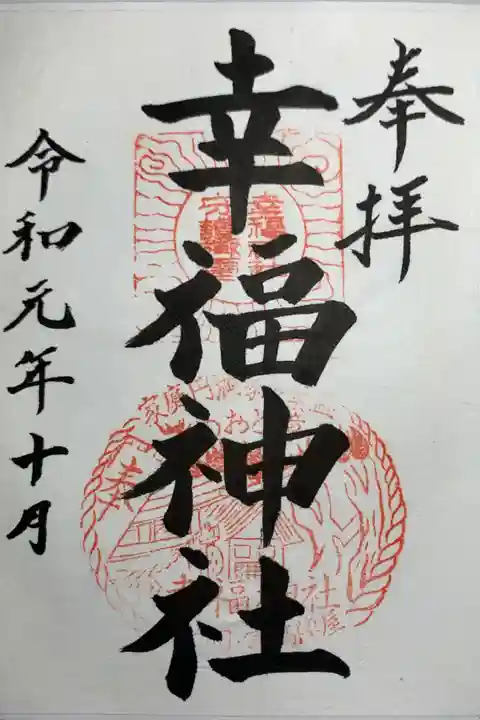 奉拝
幸福神社
令和元年十月